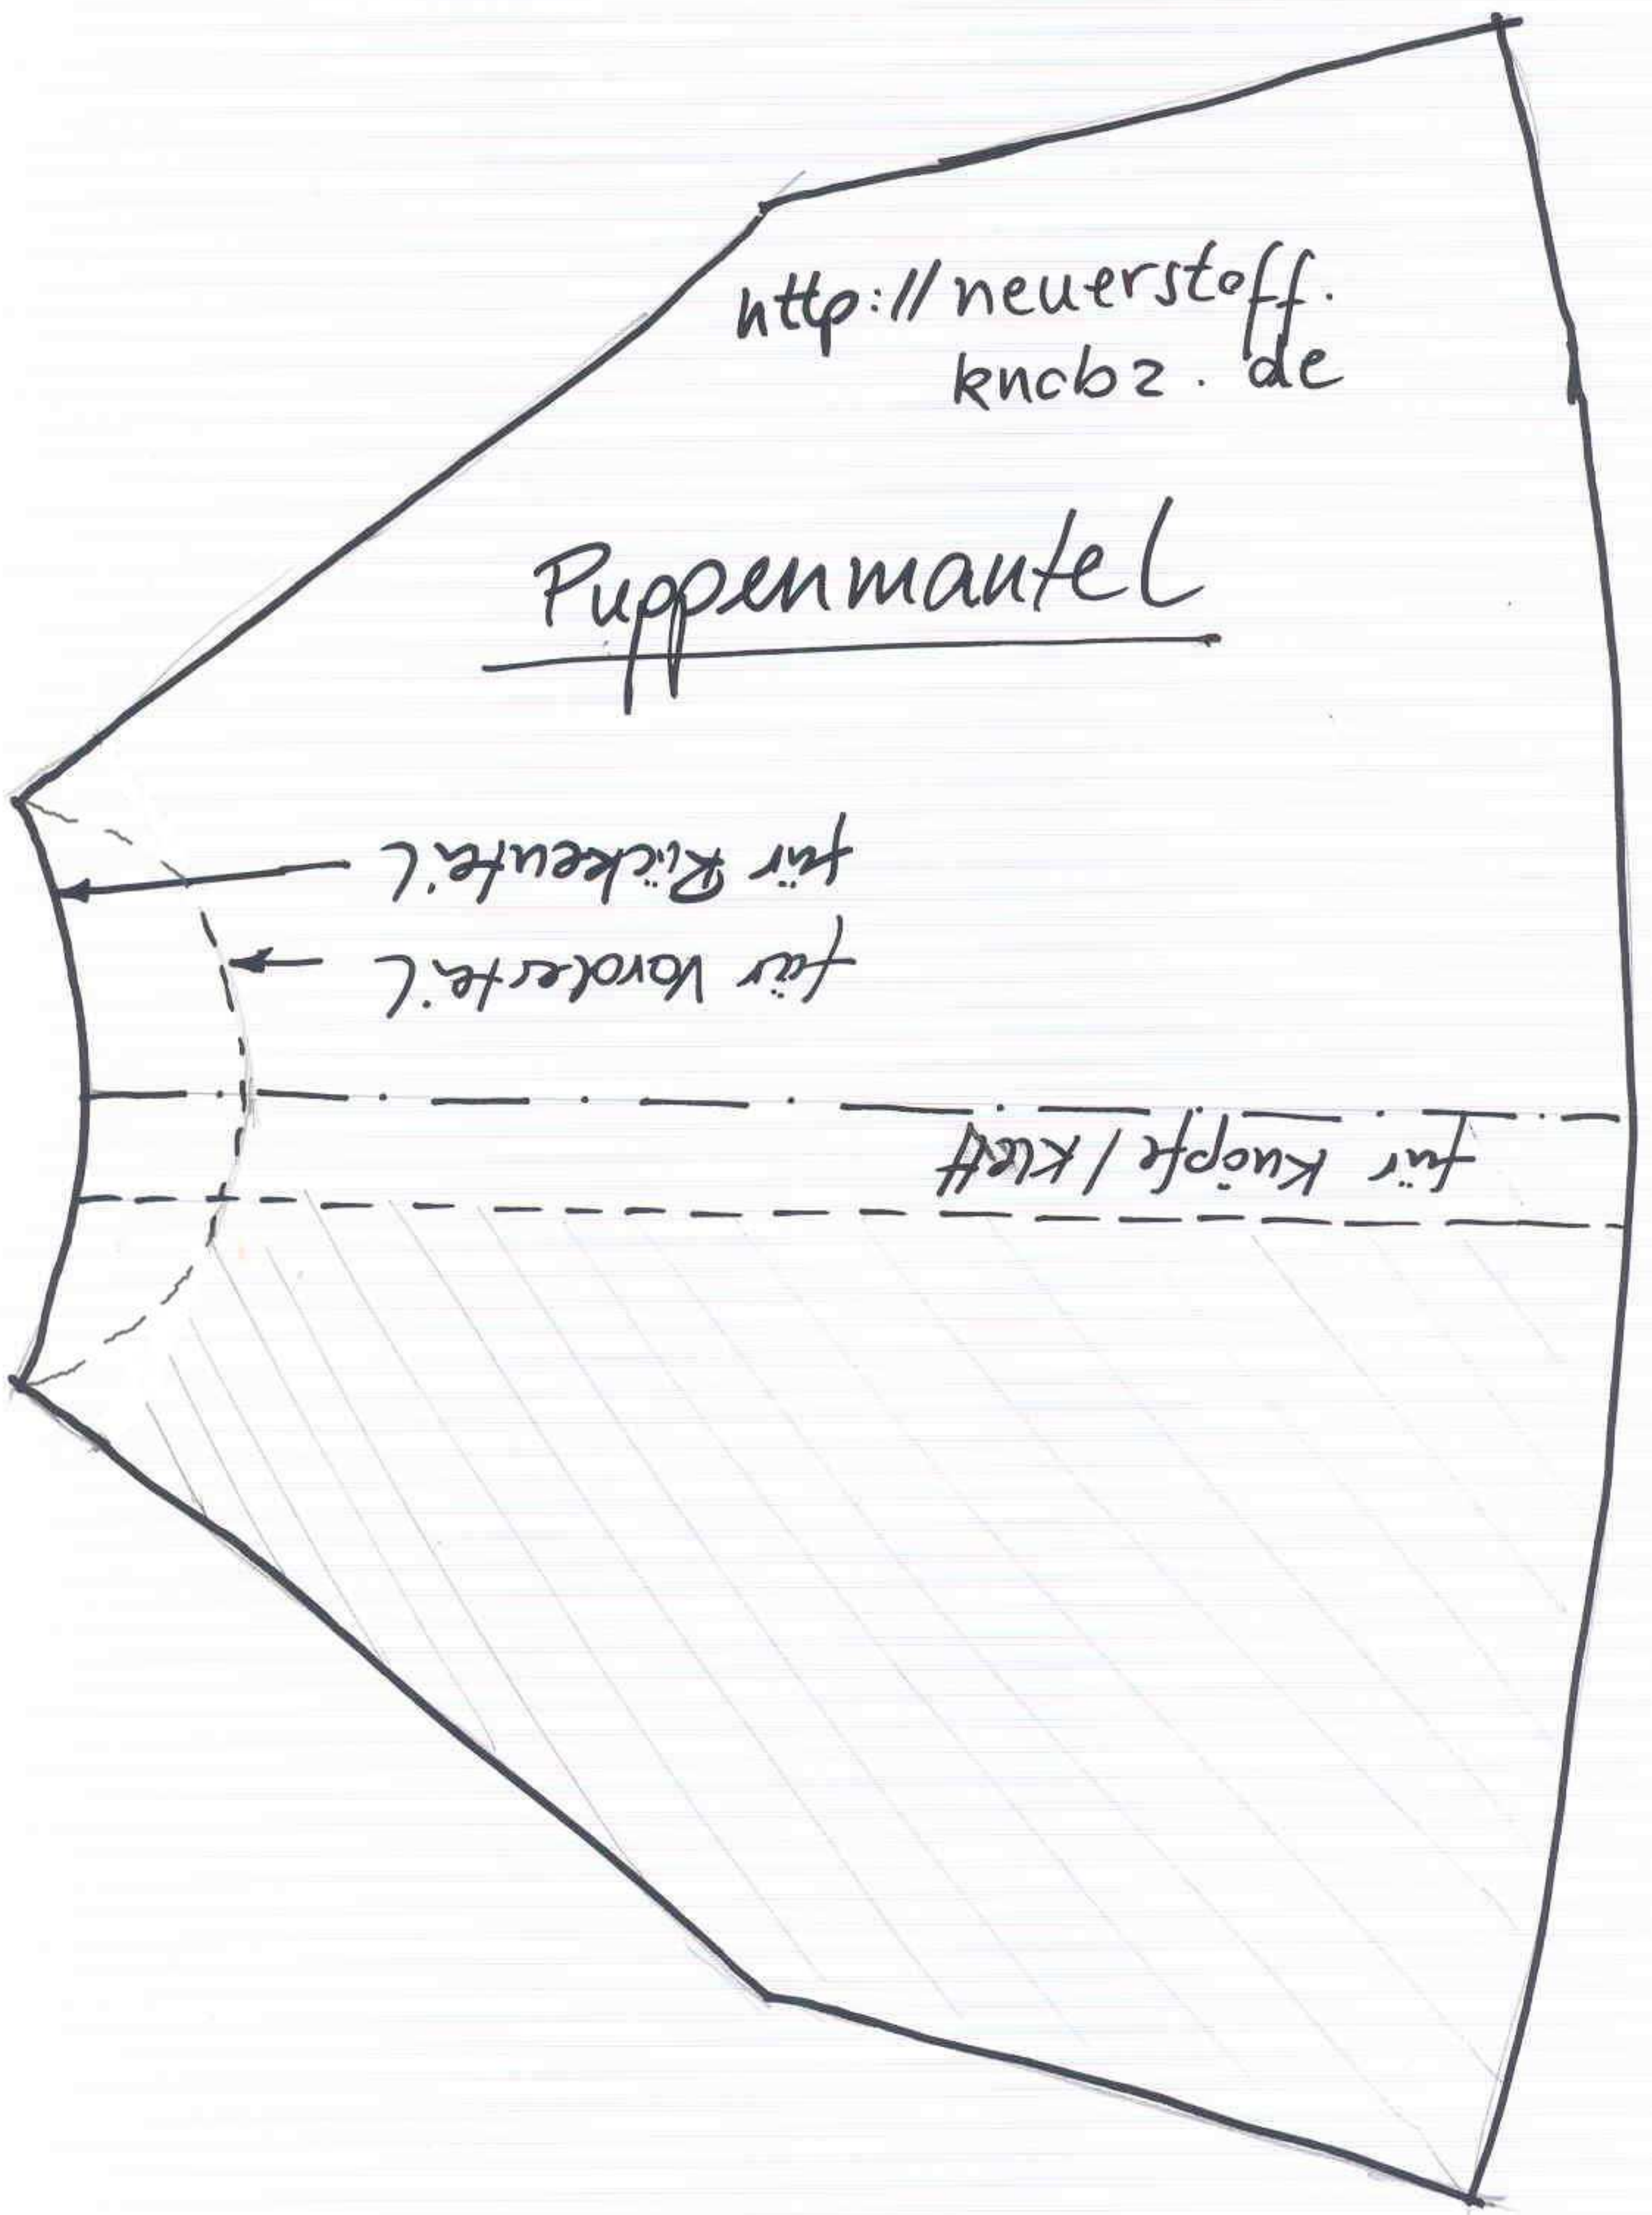 http://neuerstoff.
knobz.de
Puppenmantel
für Rückenteil
für Vorderteil
für Knöpfe/Klett